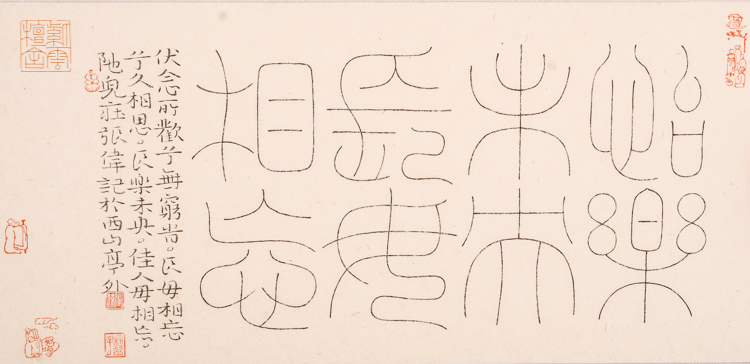 怡樂
未央
長毋
相忘
伏念所歡兮無窮旹。長毋相忘
兮久相思。長樂未央。佳人毋相忘。
兒莊張偉記於西山亭外